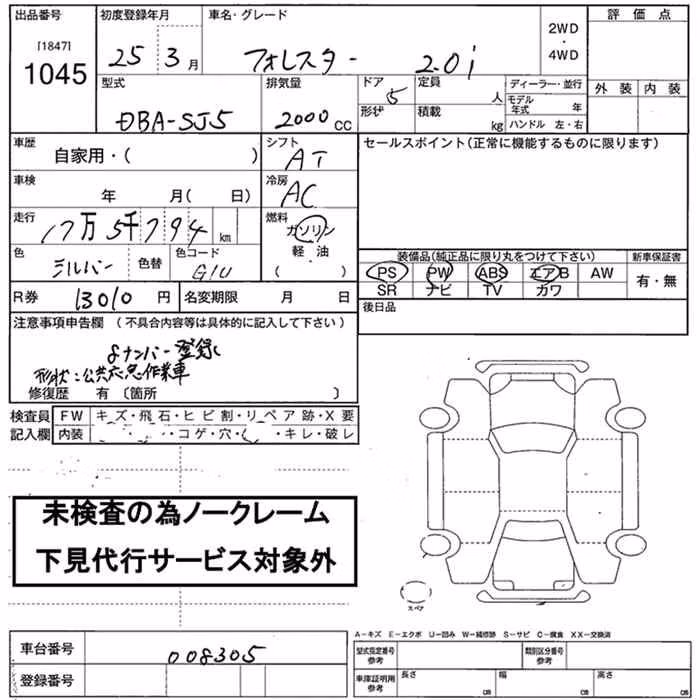 出品番号 初度登録年月 車名・グレード 評価点
[1847] 1045 25 3月 フォレスター 2.0i 2WD・4WD
型式 排気量 ドア 5 定員 人 ディーラー・並行 外装 内装
DBA-SJ5 2000cc 形状 積載 kg モデル年式 年 ハンドル 左・右
車歴 自家用・( ) シフト AT セールスポイント(正常に機能するものに限ります)
車検 年 月( 日) 冷房 AC
走行 17万5千794km 燃料 ガソリン・軽油・( )
色 シルバー 色替 色コード G1U
装備品(純正品に限り丸をつけて下さい) 新車保証書
PS PW ABS エアB AW 有・無
SR ナビ TV カワ
R券 13010円 名変期限 月 日 後日品
注意事項申告欄 (不具合内容等は具体的に記入して下さい)
8ナンバー登録
形状:公共応急作業車
修復歴 有〔箇所 〕
検査員記入欄 FW キズ・飛石・ヒビ割・リペア跡・X要
内装 コゲ・穴・キレ・破レ
未検査の為ノークレーム
下見代行サービス対象外
スペア
A-キズ E-エクボ U-凹み W-補修跡 S-サビ C-腐食 XX-交換済
車台番号 008305 型式指定番号参考 類別区分番号参考
登録番号 車庫証明用参考 長さ cm 幅 cm 高さ cm